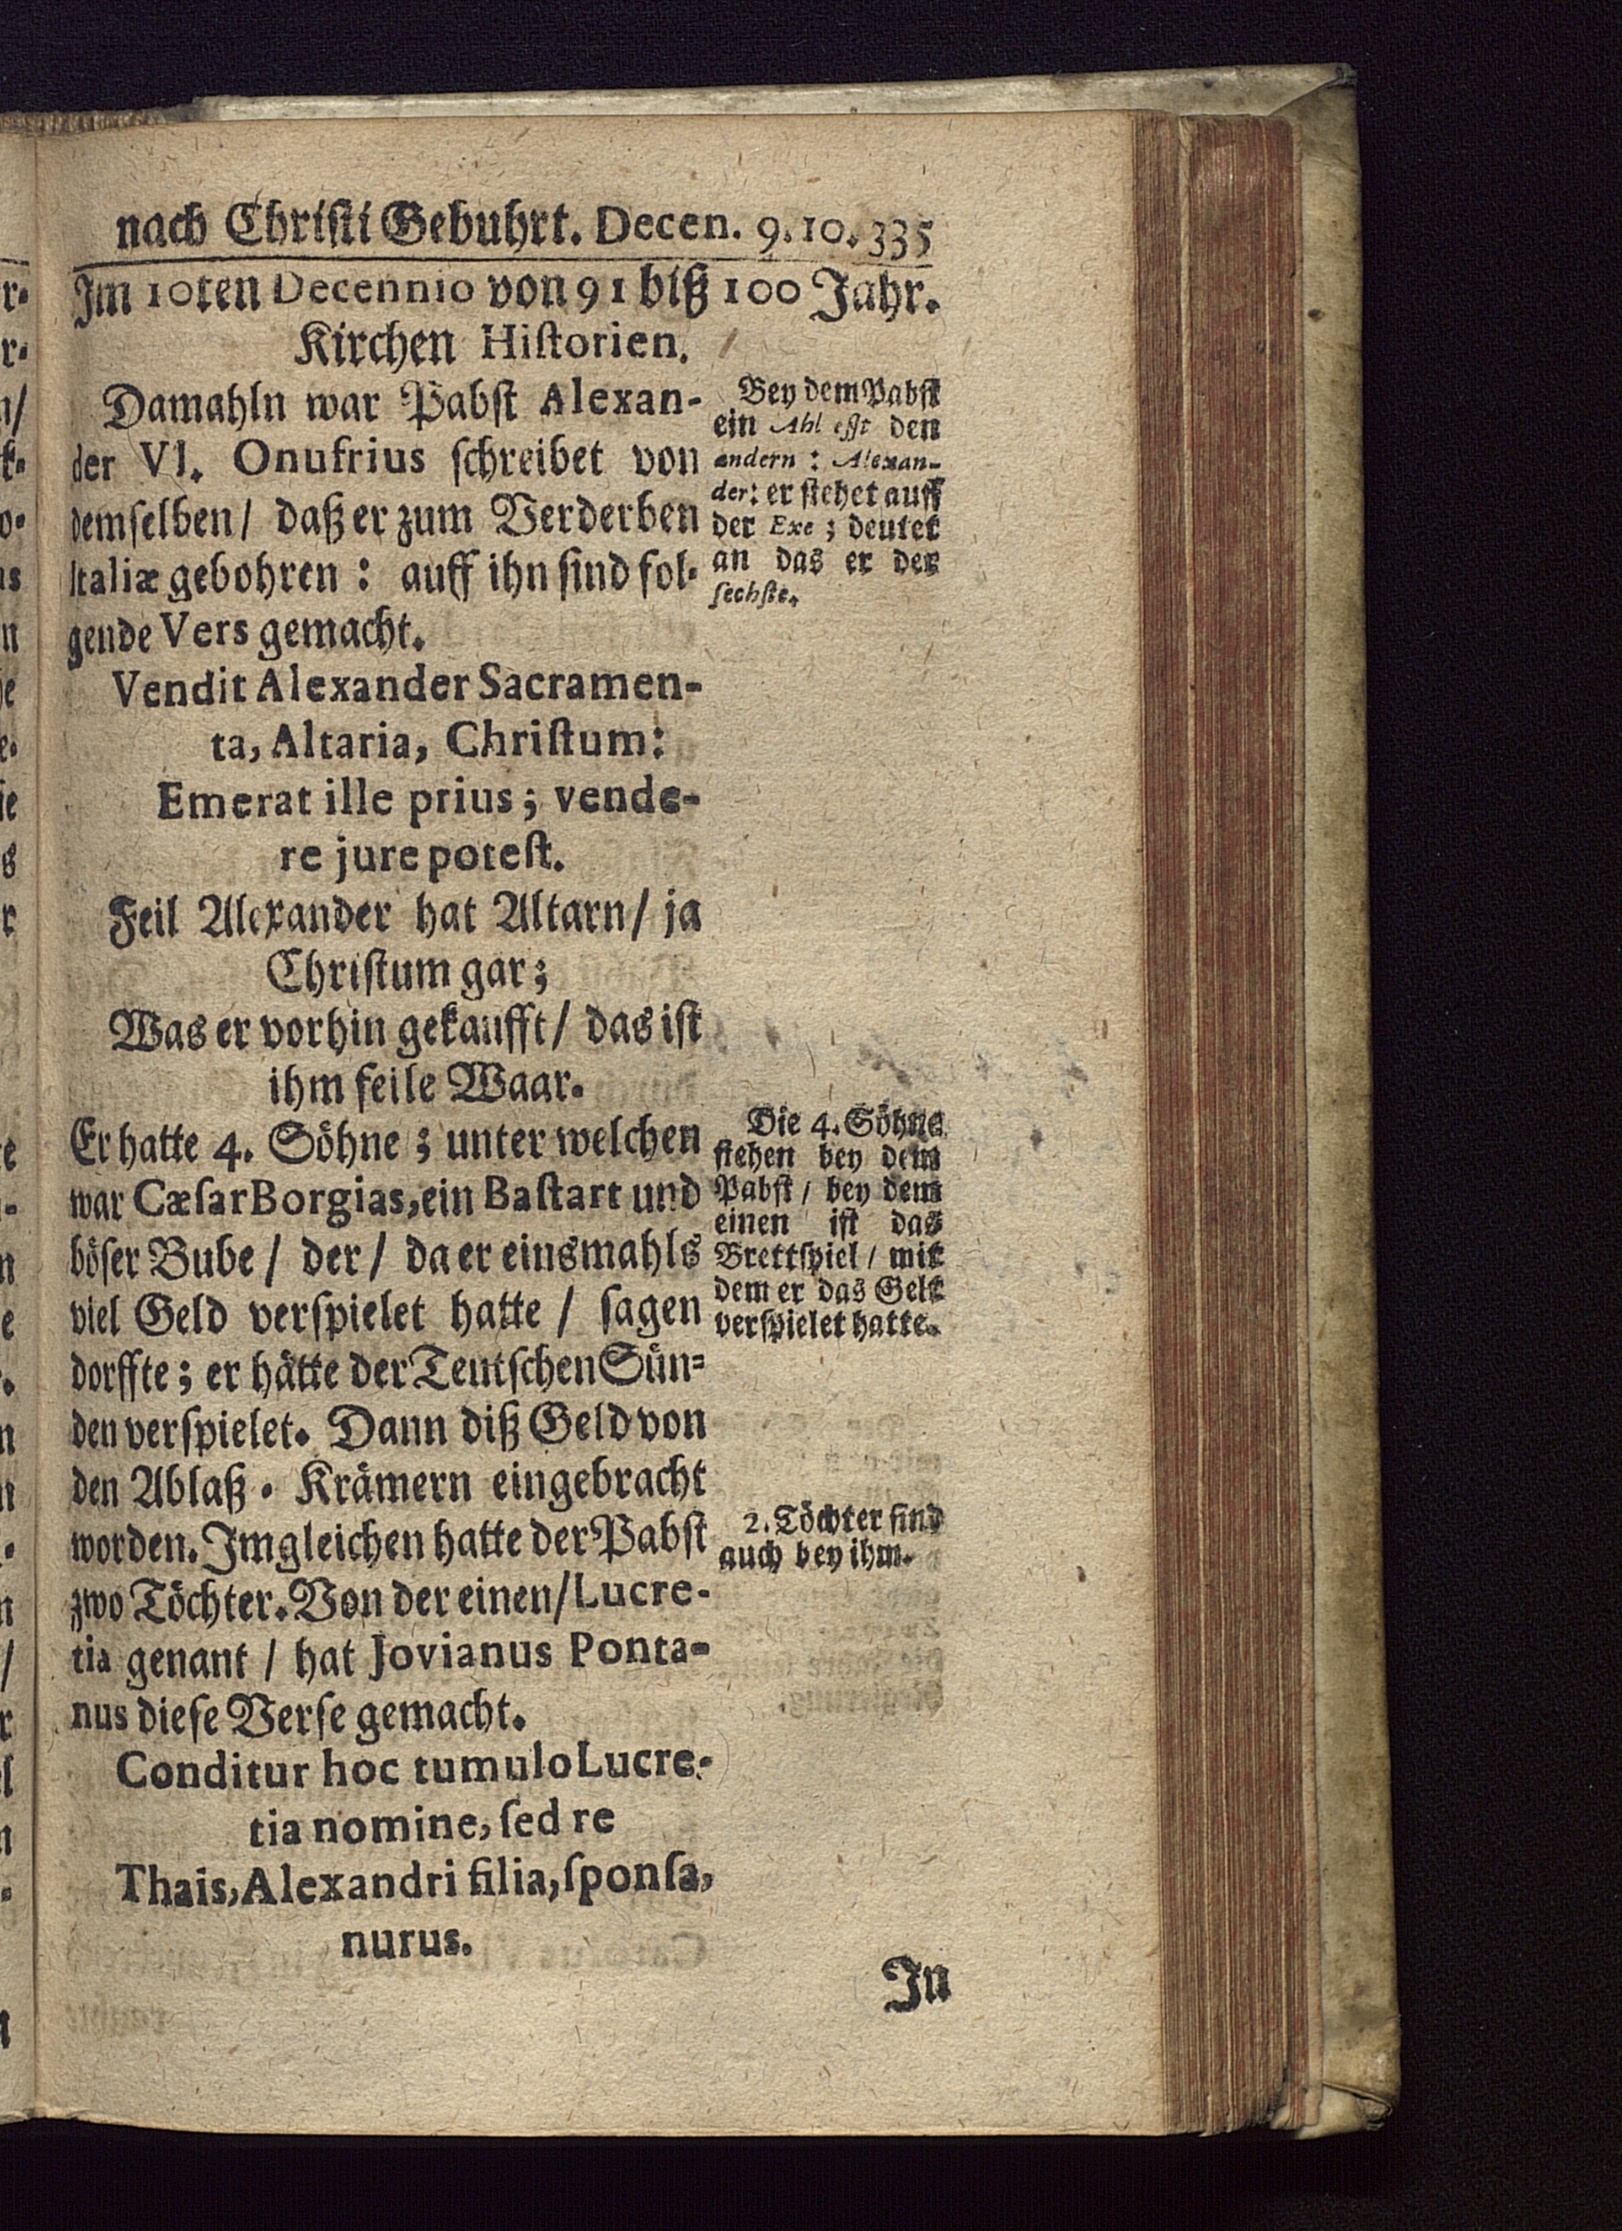 nach Chriſti Gebuhrt. Decen. 9. 10. 335
Im 10ten Decennio von 91 biß 100 Jahr.
Kirchen Hiſtorien.
Damahln war Pabſt Alexan-
der VI. Onufrius ſchreibet von
demſelben / daß er zum Verderben
Italiæ gebohren : auff ihn ſind fol-
gende Vers gemacht.
Vendit Alexander Sacramen-
ta, Altaria, Chriſtum:
Emerat ille prius; vende-
re jure poteſt.
Feil Alexander hat Altarn / ja
Chriſtum gar;
Was er vorhin gekaufft / das iſt
ihm feile Waar.
Er hatte 4. Söhne ; unter welchen
war Cæſar Borgias, ein Baſtart und
böſer Bube / der / da er einsmahls
viel Geld verſpielet hatte / ſagen
dorffte; er hätte der Teutſchen Sün-
den verſpielet. Dann diß Geld von
den Ablaß-Krämern eingebracht
worden. Imgleichen hatte der Pabſt
zwo Töchter. Von der einen / Lucre-
tia genant / hat Jovianus Ponta-
nus dieſe Verſe gemacht.
Conditur hoc tumulo Lucre-
tia nomine, ſed re
Thais, Alexandri filia, ſponſa,
nurus.
In
Bey dem Pabſt
ein Ahl eſſt den
andern : Alexan-
der: er ſtehet auff
der Exe ; deutet
an das er der
ſechſte.
Die 4. Söhne
ſtehen bey dem
Pabſt / bey dem
einen iſt das
Brettſpiel / mit
dem er das Gelt
verſpielet hatte.
2. Töchter ſind
auch bey ihm.